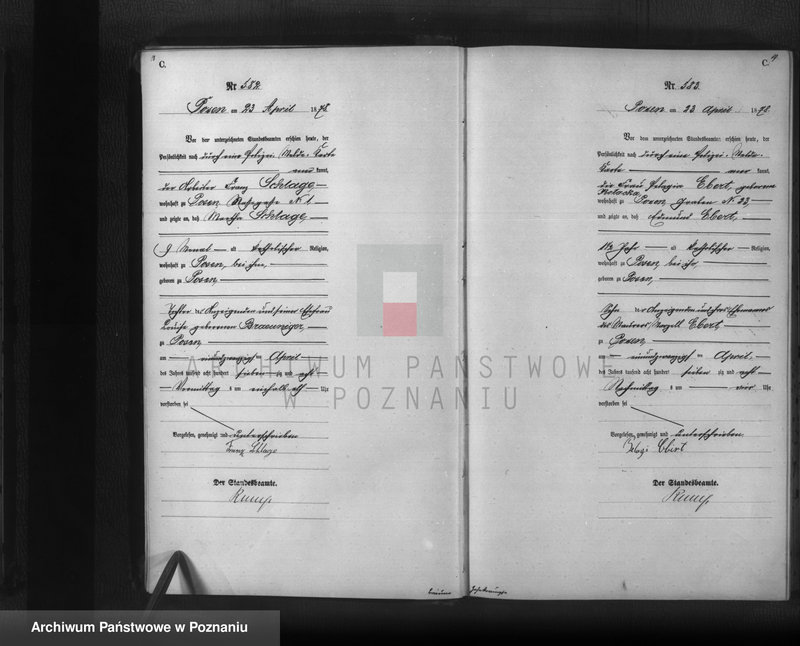 C.
Nr 582
Posen am 23 April 1878
Vor dem unterzeichneten Standesbeamten erschien heute, der
Persönlichkeit nach durch eine Polizei Melde-Karte
kannt,
der Arbeiter Franz Schlage,
wohnhaft zu Posen, № 1
und zeigte an, daß Martha Schlage,
9 Monat alt Religion,
wohnhaft zu Posen, bei ihm,
geboren zu Posen,
Tochter des Anzeigenden und seiner Ehefrau
Louise geborenen Braeuniger,
zu Posen
am ein und zwanzigsten April
des Jahres tausend acht hundert sieben zig und acht
Vormittag s um Uhr
verstorben sei
Vorgelesen, genehmigt und unterschrieben
Franz Schlage
Der Standesbeamte.
C.
Nr 583.
Posen am 23 April 1878
Vor dem unterzeichneten Standesbeamten erschien heute, der
Persönlichkeit nach durch eine Polizei-Melde-
Karte kannt,
die Frau Pelagia Ebert, geborene
wohnhaft zu Posen, Graben № 23,
und zeigte an, daß Edmund Ebert,
Jahr alt Religion,
wohnhaft zu Posen, bei ihr,
geboren zu Posen,
Sohn der Anzeigenden und ihres Ehemannes
des Maurer, Ebert,
zu Posen,
am ein und zwanzigsten April
des Jahres tausend acht hundert sieben zig und acht
Nachmittag s um vier Uhr
verstorben sei
Vorgelesen, genehmigt und unterschrieben
Ebert
Der Standesbeamte.
ARCHIWUM PAŃSTWOWE
W POZNANIU
Archiwum Państwowe w Poznaniu